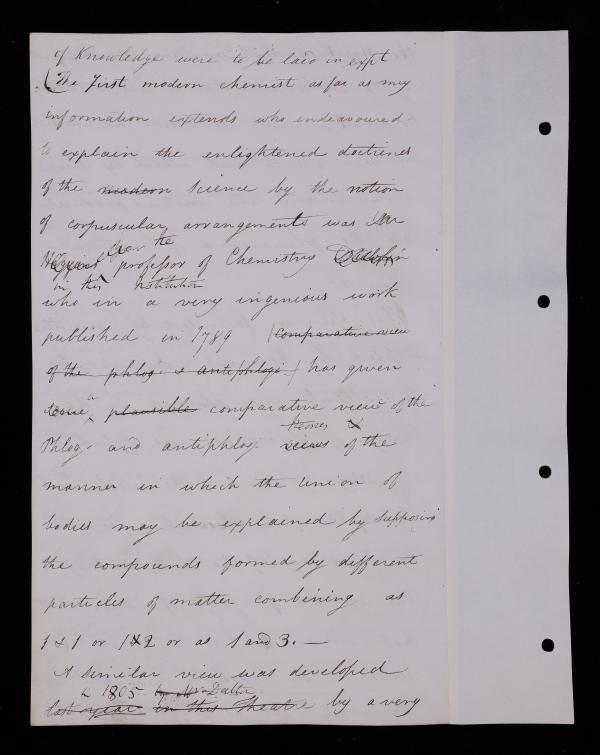 of Knowledge were to be laid in expt
(The First modern chemist as far as my
information extends who endeavoured
to explain the enlightened doctrines
of the modern science by the notion
of corpuscular arrangements was Mr
the
Higgins professor of Chemistry Dublin
in this Institution
who in a very ingenious work
published in 1789 (comparative view
of the phlogi & antiphlogi) has given
a plausible comparative view of the
Phlog- and antiphlogi views of the
manner in which the Union of
bodies may be explained by supposing
the compounds formed by different
particles of matter combining as
1 & 1 or 1 & 2 or as 1 and 3. —
A similar view was developed
1805 by Mr Dalton
last year in this Theatre by a very